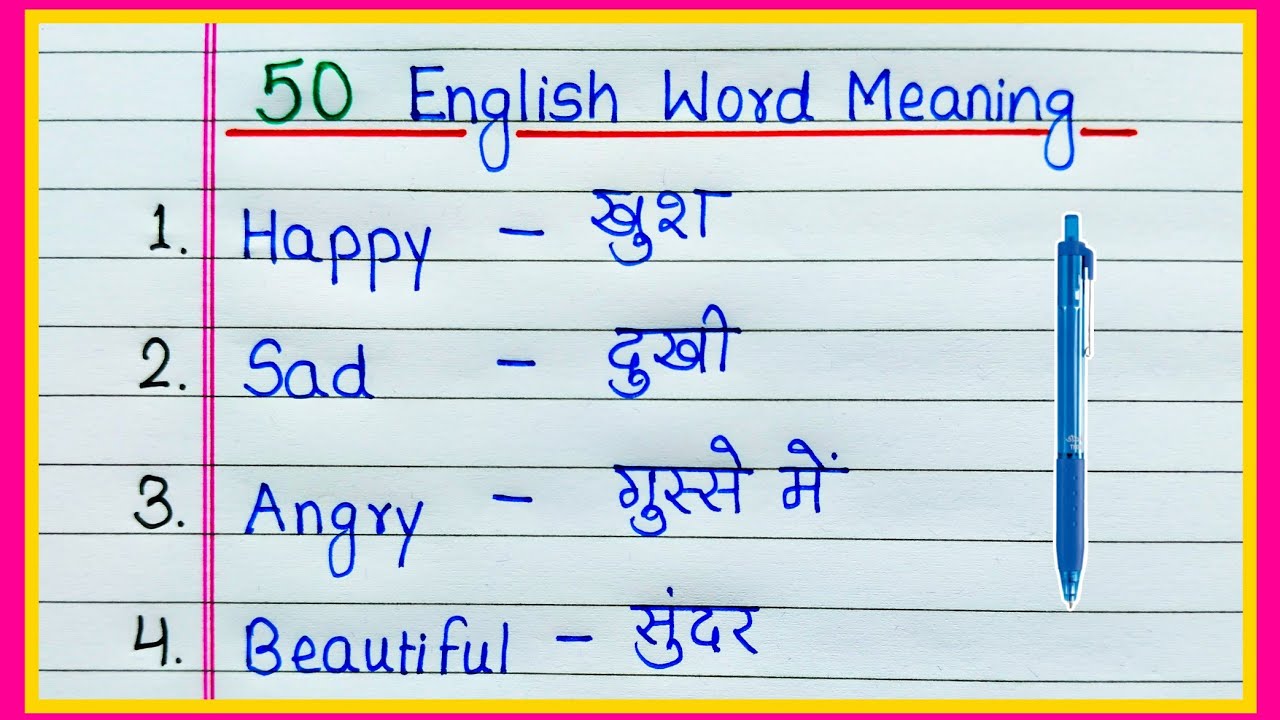 50 English Word Meaning
1. Happy - खुश
2. Sad - दुखी
3. Angry - गुस्से में
4. Beautiful - सुंदर